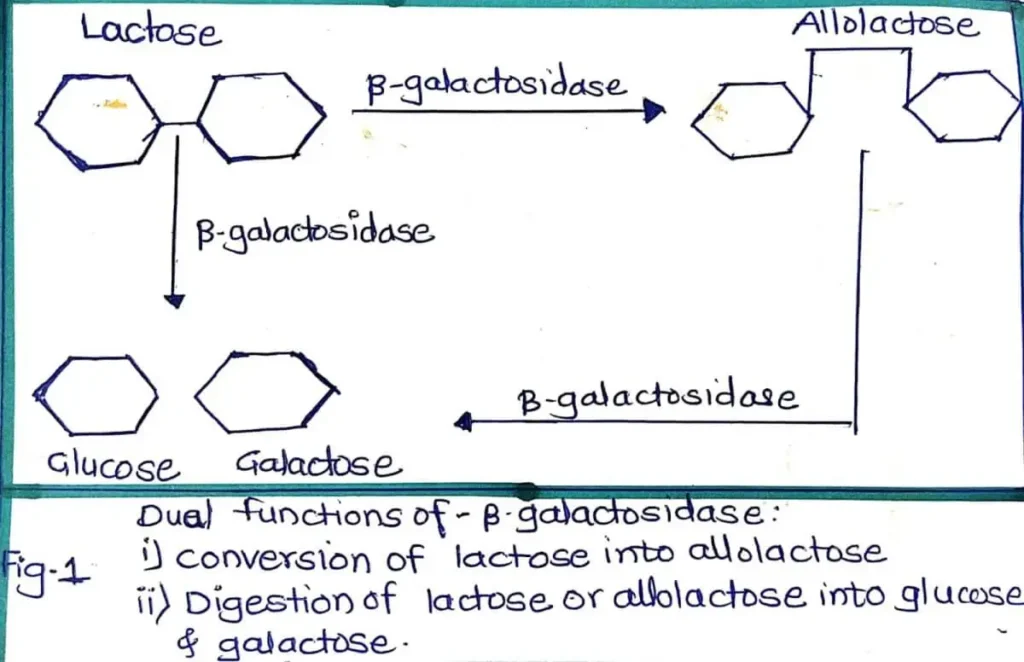 Lactose
Allolactose
β-galactosidase
β-galactosidase
β-galactosidase
Glucose Galactose
Fig-1
Dual functions of - β-galactosidase:
i) conversion of lactose into allolactose
ii) Digestion of lactose or allolactose into glucose
& galactose.